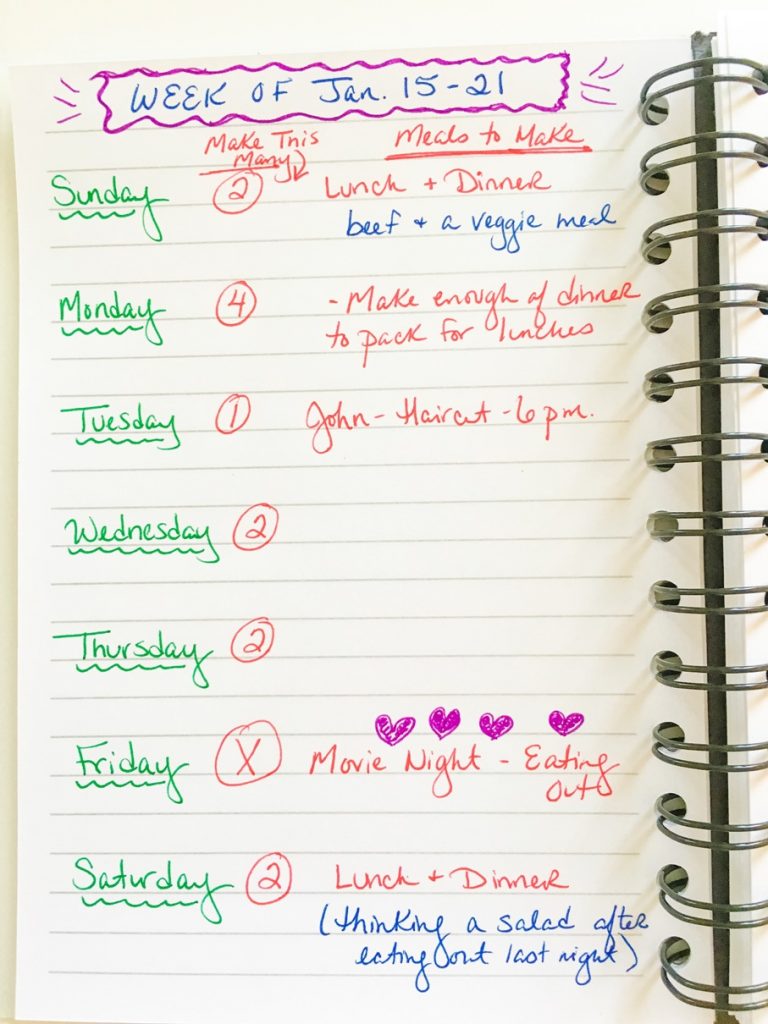 WEEK OF Jan. 15-21
Make This Many
Meals to Make
Sunday 2 Lunch + Dinner
beef + a veggie meal
Monday 4 - Make enough of dinner
to pack for lunches
Tuesday 1 John - Haircut - 6 pm.
Wednesday 2
Thursday 2
Friday X Movie Night - Eating
Out
Saturday 2 Lunch + Dinner
(thinking a salad after
eating out last night)